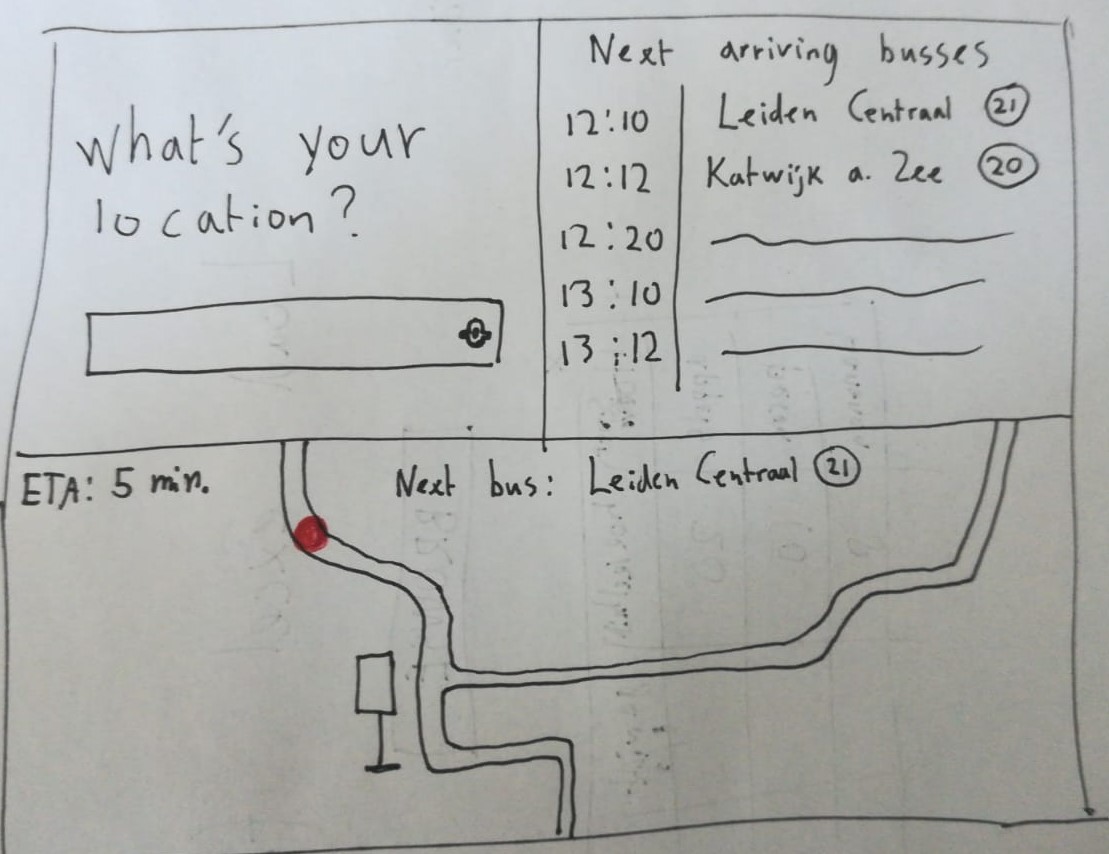 What's your
location?
Next arriving busses
12:10 Leiden Centraal 21
12:12 Katwijk a. Zee 20
12:20
13:10
13:12
ETA: 5 min.
Next bus: Leiden Centraal 21